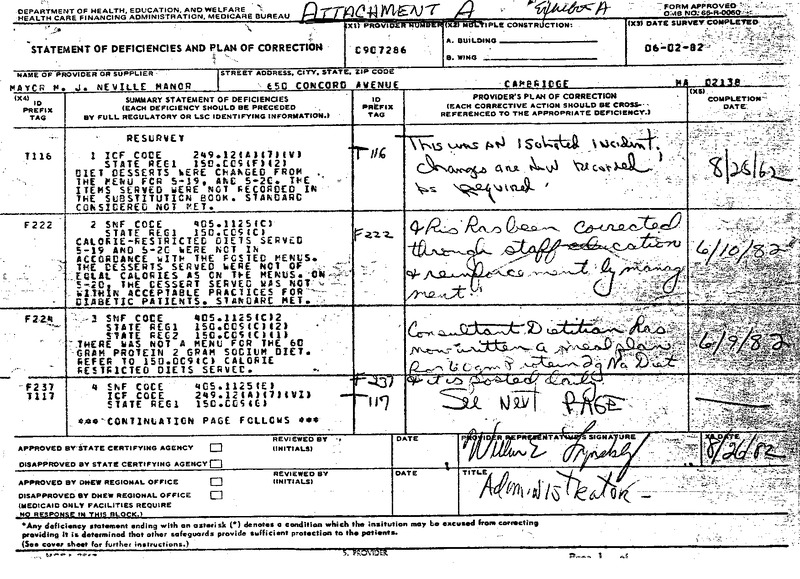 DEPARTMENT OF HEALTH, EDUCATION, AND WELFARE
HEALTH CARE FINANCING ADMINISTRATION, MEDICARE BUREAU
ATTACHMENT A
Exhibit A
FORM APPROVED
OMB NO. 66-R-0060
STATEMENT OF DEFICIENCIES AND PLAN OF CORRECTION
(X1) PROVIDER NUMBER
C907286
(X2) MULTIPLE CONSTRUCTION:
A. BUILDING
B. WING
(X3) DATE SURVEY COMPLETED
06-02-82
NAME OF PROVIDER OR SUPPLIER
MAYOR M. J. NEVILLE MANOR
STREET ADDRESS, CITY, STATE, ZIP CODE
650 CONCORD AVENUE CAMBRIDGE MA 02138
(X4)
ID
PREFIX
TAG
SUMMARY STATEMENT OF DEFICIENCIES
(EACH DEFICIENCY SHOULD BE PRECEDED
BY FULL REGULATORY OR LSC IDENTIFYING INFORMATION.)
ID
PREFIX
TAG
PROVIDER'S PLAN OF CORRECTION
(EACH CORRECTIVE ACTION SHOULD BE CROSS-
REFERENCED TO THE APPROPRIATE DEFICIENCY.)
(X5)
COMPLETION
DATE
RESURVEY
T116
1 ICF CODE 249.12(A)(7)(V)
STATE REG1 150.009(F)(2)
DIET DESSERTS WERE CHANGED FROM
THE MENU FOR 5-19, AND 5-20. THE
ITEMS SERVED WERE NOT RECORDED IN
THE SUBSTITUTION BOOK. STANDARD
CONSIDERED NOT MET.
T116
This was an isolated incident,
changes are now recorded
as required.
8/25/82
F222
2 SNF CODE 405.1125(C)
STATE REG1 150.009(C)
CALORIE-RESTRICTED DIETS SERVED
5-19 AND 5-20 WERE NOT IN
ACCORDANCE WITH THE POSTED MENUS.
THE DESSERTS SERVED WERE NOT OF
EQUAL CALORIES AS ON THE MENUS. ON
5-20, THE DESSERT SERVED WAS NOT
WITHIN ACCEPTABLE PRACTICES FOR
DIABETIC PATIENTS. STANDARD MET.
F222
This has been corrected
through staff education
& reinforcement by manage
ment.
6/10/82
F224
3 SNF CODE 405.1125(C)2
STATE REG1 150.009(C)(2)
STATE REG2 150.009(C)(1)
THERE WAS NOT A MENU FOR THE 60
GRAM PROTEIN 2 GRAM SODIUM DIET.
REFER TO 150.009(C) CALORIE
RESTRICTED DIETS SERVED.
Consultant Dietitian has
now written a meal plan
for 60 gm Protein 2g Na Diet
& it is posted daily.
6/9/82
F237
T117
4 SNF CODE 405.1125(E)
ICF CODE 249.12(A)(7)(VI)
STATE REG1 150.009(E)
*** CONTINUATION PAGE FOLLOWS ***
F237
T117
See Next PAGE
APPROVED BY STATE CERTIFYING AGENCY
DISAPPROVED BY STATE CERTIFYING AGENCY
REVIEWED BY
(INITIALS)
DATE
PROVIDER REPRESENTATIVE'S SIGNATURE
X6 DATE
8/26/82
APPROVED BY DHEW REGIONAL OFFICE
DISAPPROVED BY DHEW REGIONAL OFFICE
(MEDICAID ONLY FACILITIES REQUIRE
NO RESPONSE IN THIS BLOCK.)
REVIEWED BY
(INITIALS)
DATE
TITLE
Administrator
*Any deficiency statement ending with an asterisk (*) denotes a condition which the insitution may be excused from correcting
providing it is determined that other safeguards provide sufficient protection to the patients.
(See cover sheet for further instructions.)
5. PROVIDER
Page 1 of